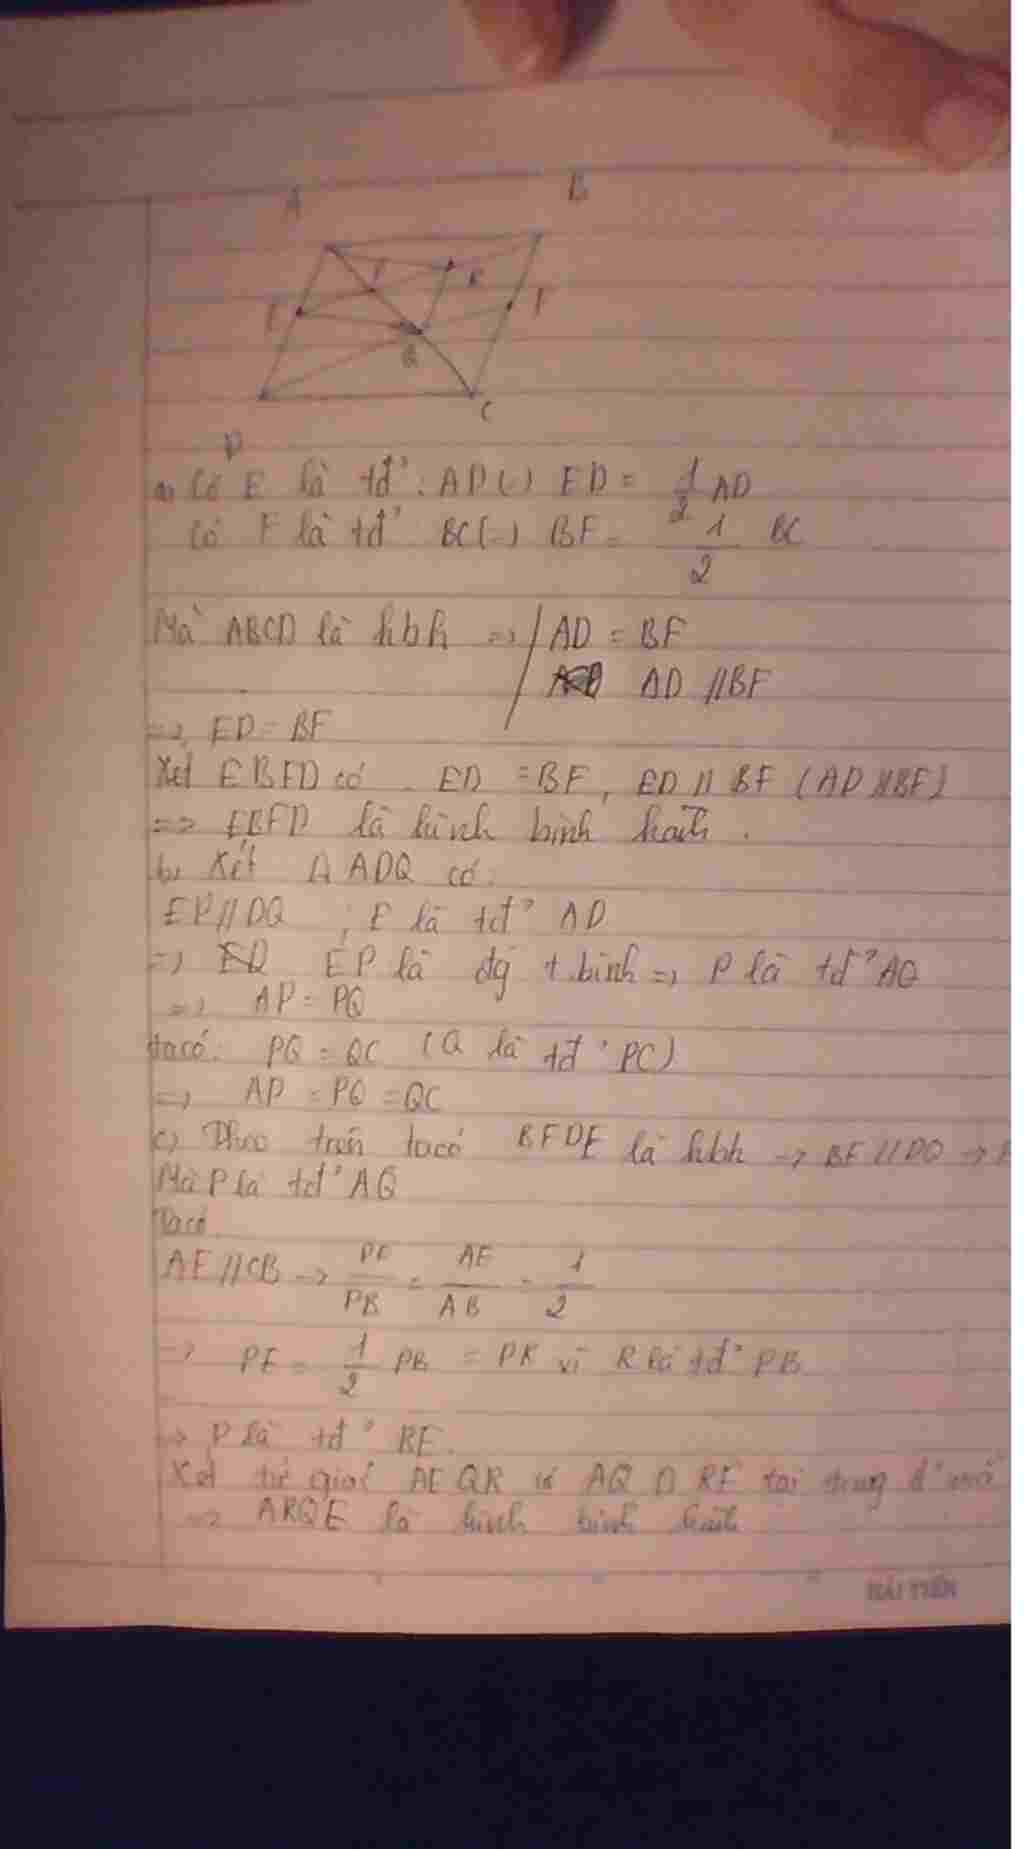 A
B
P
R
E
F
Q
C
D
a) Có E là tđ². AD (-) ED = 1/2 AD
Có F là tđ² BC (-) BF = 1/2 BC
Mà ABCD là hbh => / AD = BF
AD // BF
=> ED = BF
Xét EBFD có ED = BF, ED // BF (AD // BF)
=> EBFD là hình bình hành.
b, Xét Δ ADQ có.
EP // DQ ; E là tđ² AD
=> EP là đg t.bình => P là tđ² AQ
=> AP = PQ
ta có. PQ = QC (Q là tđ² PC)
=> AP = PQ = QC
c) Theo trên ta có BFDE là hbh -> BE // DQ ->
Mà P là tđ² AQ
Ta có
AE // CB -> PE/PB = AE/AB = 1/2
-> PE = 1/2 PB = PR vì R là tđ² PB
-> P là tđ² RE.
Xét tứ giác AEQR có AQ ∩ RE tại trung đ²
=> ARQE là hình bình hành
HẢI TIẾN